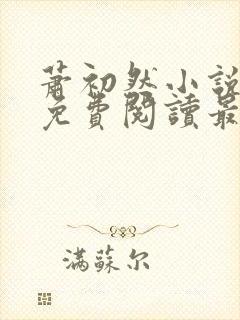 蕭初然小說
免費閱讀最
滿蘇尔